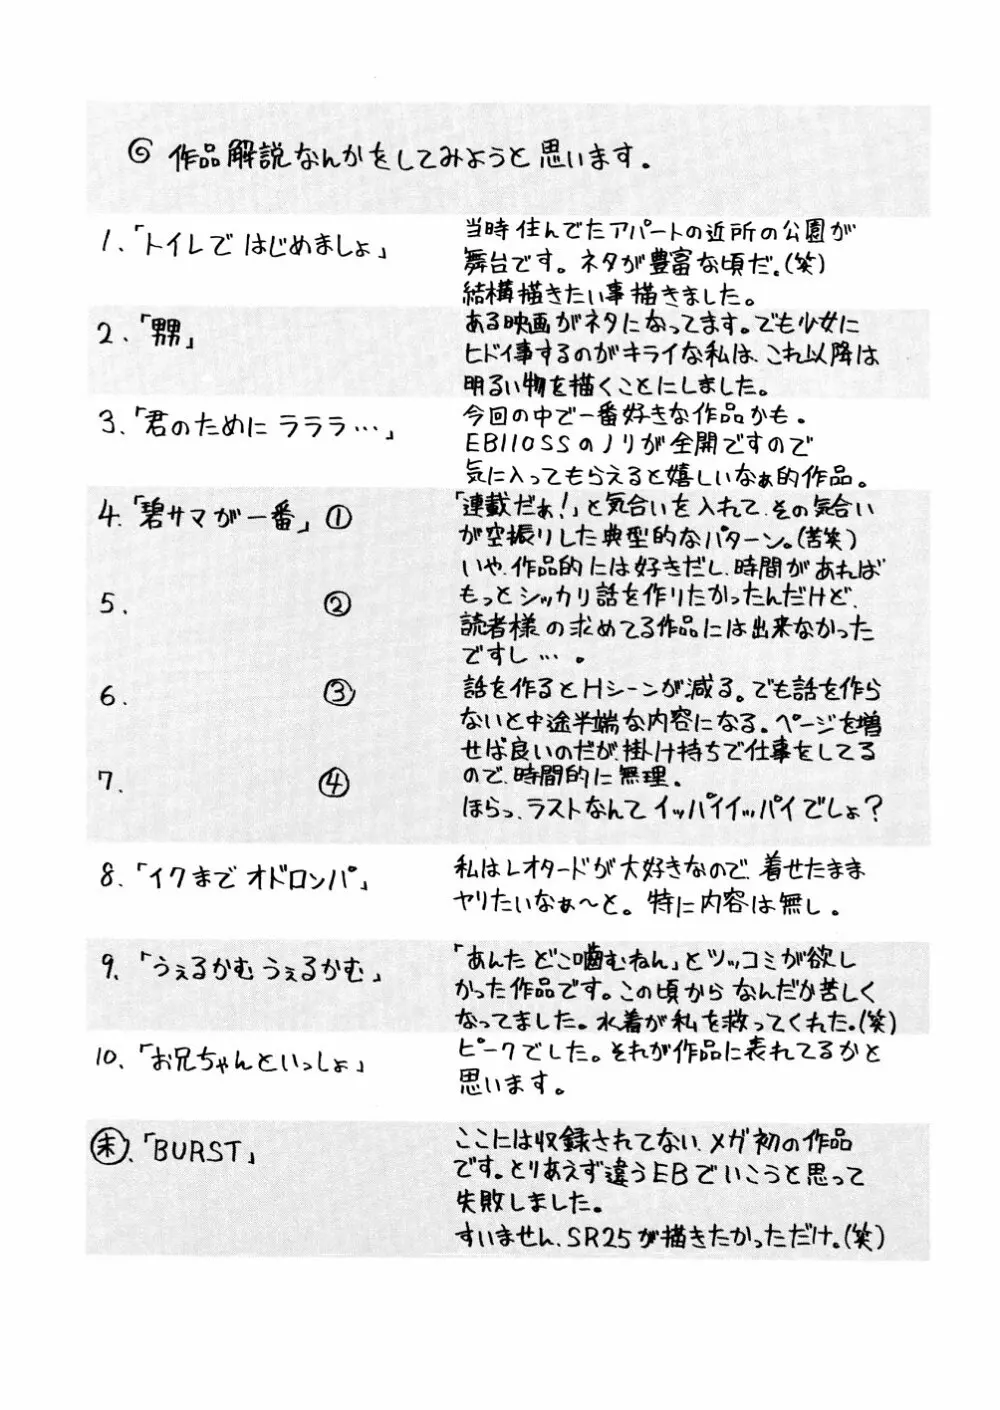 ◎ 作品解説なんかをしてみようと思います。
1.「トイレで はじめましょ」
当時住んでたアパートの近所の公園が
舞台です。ネタが豊富な頃だ。(笑)
結構描きたい事描きました。
2.「嬲」
ある映画がネタになってます。でも少女に
ヒドイ事するのがキライな私は、これ以降は
明るい物を描くことにしました。
3.「君のために ラララ…」
今回の中で一番好きな作品かも。
EB110SSのノリが全開ですので
気に入ってもらえると嬉しいなぁ的作品。
4.「碧サマが一番」①
5. ②
6. ③
7. ④
「連載だぁ!」と気合いを入れて、その気合い
が空振りした典型的なパターン。(苦笑)
いや、作品的には好きだし、時間があれば
もっとシッカリ話を作りたかったんだけど、
読者様の求めてる作品には出来なかった
ですし…。
話を作るとHシーンが減る。でも話を作ら
ないと中途半端な内容になる。ページを増
せば良いのだが、掛け持ちで仕事をしてる
ので、時間的に無理。
ほらっ、ラストなんてイッパイイッパイでしょ?
8.「イクまで オドロンパ」
私はレオタードが大好きなので、着せたまま
ヤりたいなぁ〜と。特に内容は無し。
9.「うぇるかむ うぇるかむ」
「あんた どこ噛むねん」とツッコミが欲し
かった作品です。この頃から なんだか苦しく
なってました。水着が私を救ってくれた。(笑)
10.「お兄ちゃんといっしょ」
ピークでした。それが作品に表れてるかと
思います。
㊍.「BURST」
ここには収録されてない、メガ初の作品
です。とりあえず違うEBでいこうと思って
失敗しました。
すいません、SR25が描きたかっただけ。(笑)